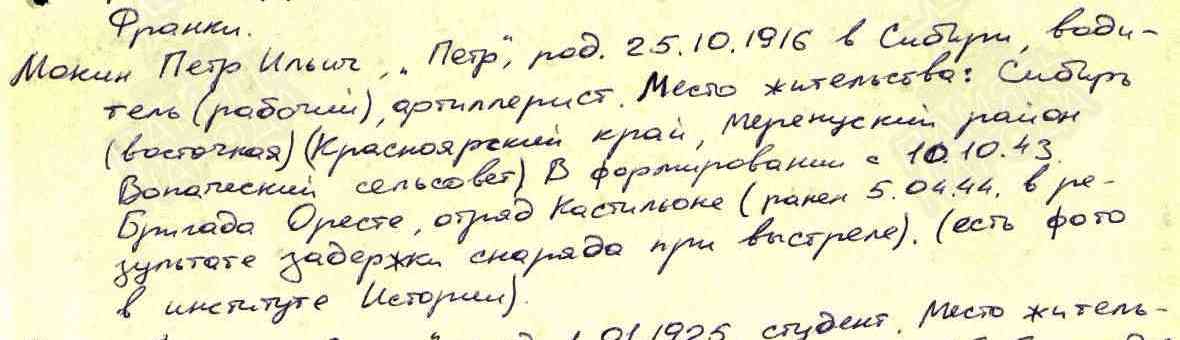 Франки.
Мокин Петр Ильич, „Петр", род. 25.10.1916 в Сибири, води-
тель (рабочий), артиллерист. Место жительства: Сибирь
(восточная) (Красноярский край, Меренуский район
Вопаческий сельсовет) В формировании с 10.10.43.
Бригада Оресте, отряд Кастильоне (ранен 5.04.44. в ре-
зультате задержки снаряда при выстреле). (есть фото
в институте Истории).
1.01.1925 студент. Место житель-